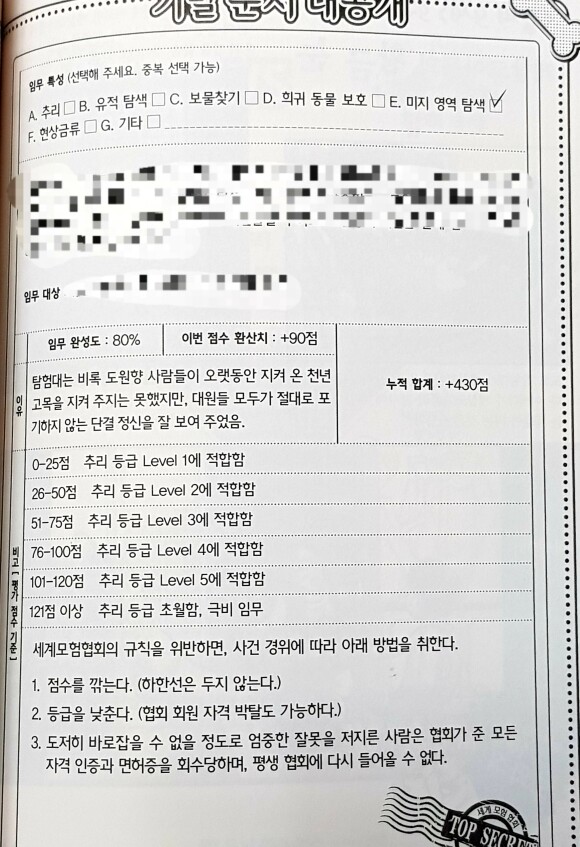 기밀 문서 대공개
임무 특성 (선택해 주세요. 중복 선택 가능)
A. 추리 □ B. 유적 탐색 □ C. 보물찾기 □ D. 희귀 동물 보호 □ E. 미지 영역 탐색 ☑
F. 현상금류 □ G. 기타 □
임무 대상
임무 완성도 : 80%
이번 점수 환산치 : +90점
누적 합계 : +430점
이유
탐험대는 비록 도원향 사람들이 오랫동안 지켜 온 천년
고목을 지켜 주지는 못했지만, 대원들 모두가 절대로 포
기하지 않는 단결 정신을 잘 보여 주었음.
비고 [평가 점수 기준]
0-25점 추리 등급 Level 1에 적합함
26-50점 추리 등급 Level 2에 적합함
51-75점 추리 등급 Level 3에 적합함
76-100점 추리 등급 Level 4에 적합함
101-120점 추리 등급 Level 5에 적합함
121점 이상 추리 등급 초월함, 극비 임무
세계모험협회의 규칙을 위반하면, 사건 경위에 따라 아래 방법을 취한다.
1. 점수를 깎는다. (하한선은 두지 않는다.)
2. 등급을 낮춘다. (협회 회원 자격 박탈도 가능하다.)
3. 도저히 바로잡을 수 없을 정도로 엄중한 잘못을 저지른 사람은 협회가 준 모든
자격 인증과 면허증을 회수당하며, 평생 협회에 다시 들어올 수 없다.
세계 모험 협회
TOP SECRET